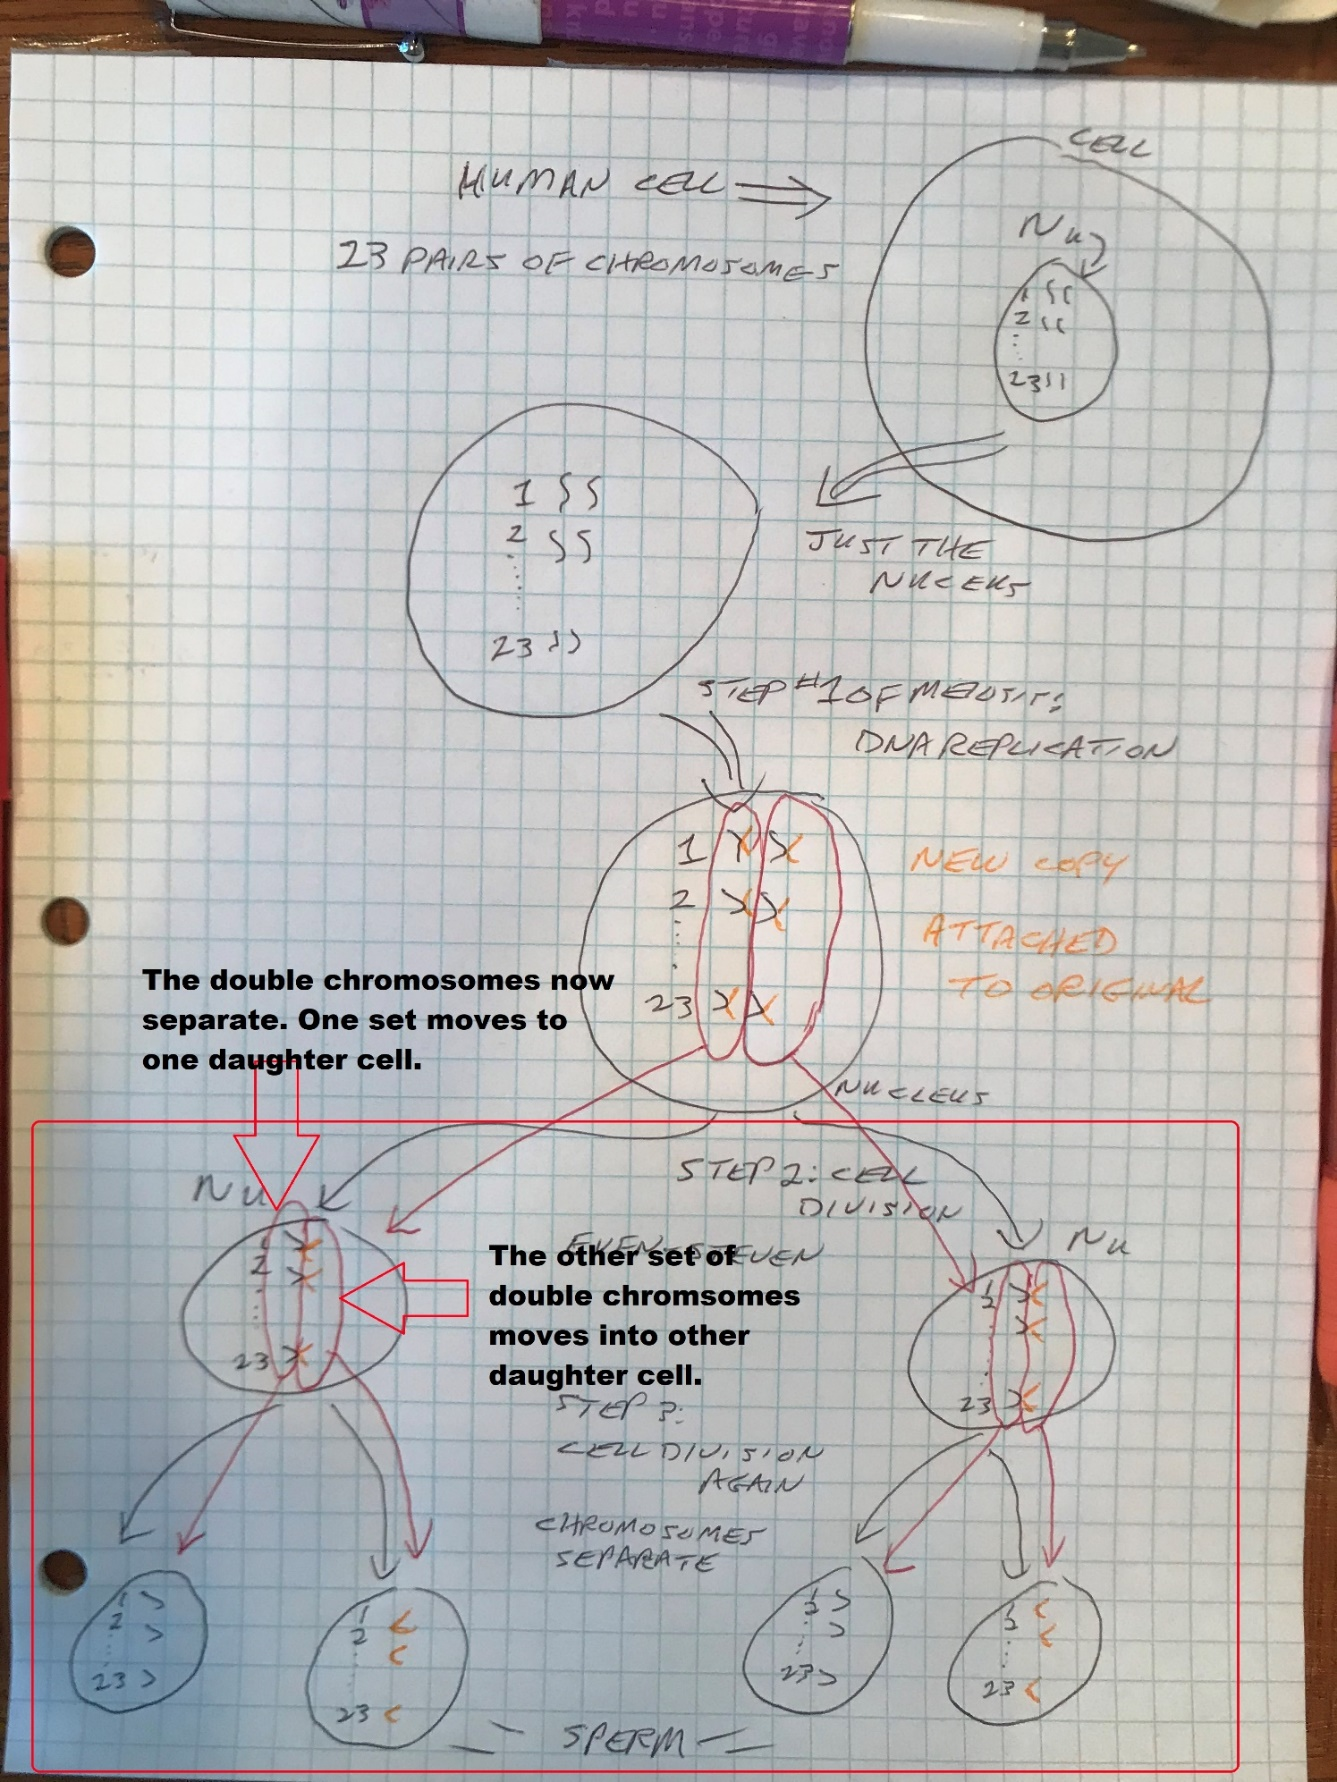 CELL
HUMAN CELL
Nu
23 PAIRS OF CHROMOSOMES
1
2
23
1
2
23
JUST THE
NUCLEUS
STEP #1 OF MEIOSIS:
DNA REPLICATION
1
2
23
NEW COPY
ATTACHED
TO ORIGINAL
The double chromosomes now
separate. One set moves to
one daughter cell.
NUCLEUS
STEP 2: CELL
DIVISION
Nu
EVEN-STEVEN
Nu
1
2
23
The other set of
double chromsomes
moves into other
daughter cell.
1
2
23
STEP 3:
CELL DIVISION
AGAIN
CHROMOSOMES
SEPARATE
1
2
23
1
2
23
1
2
23
1
2
23
SPERM